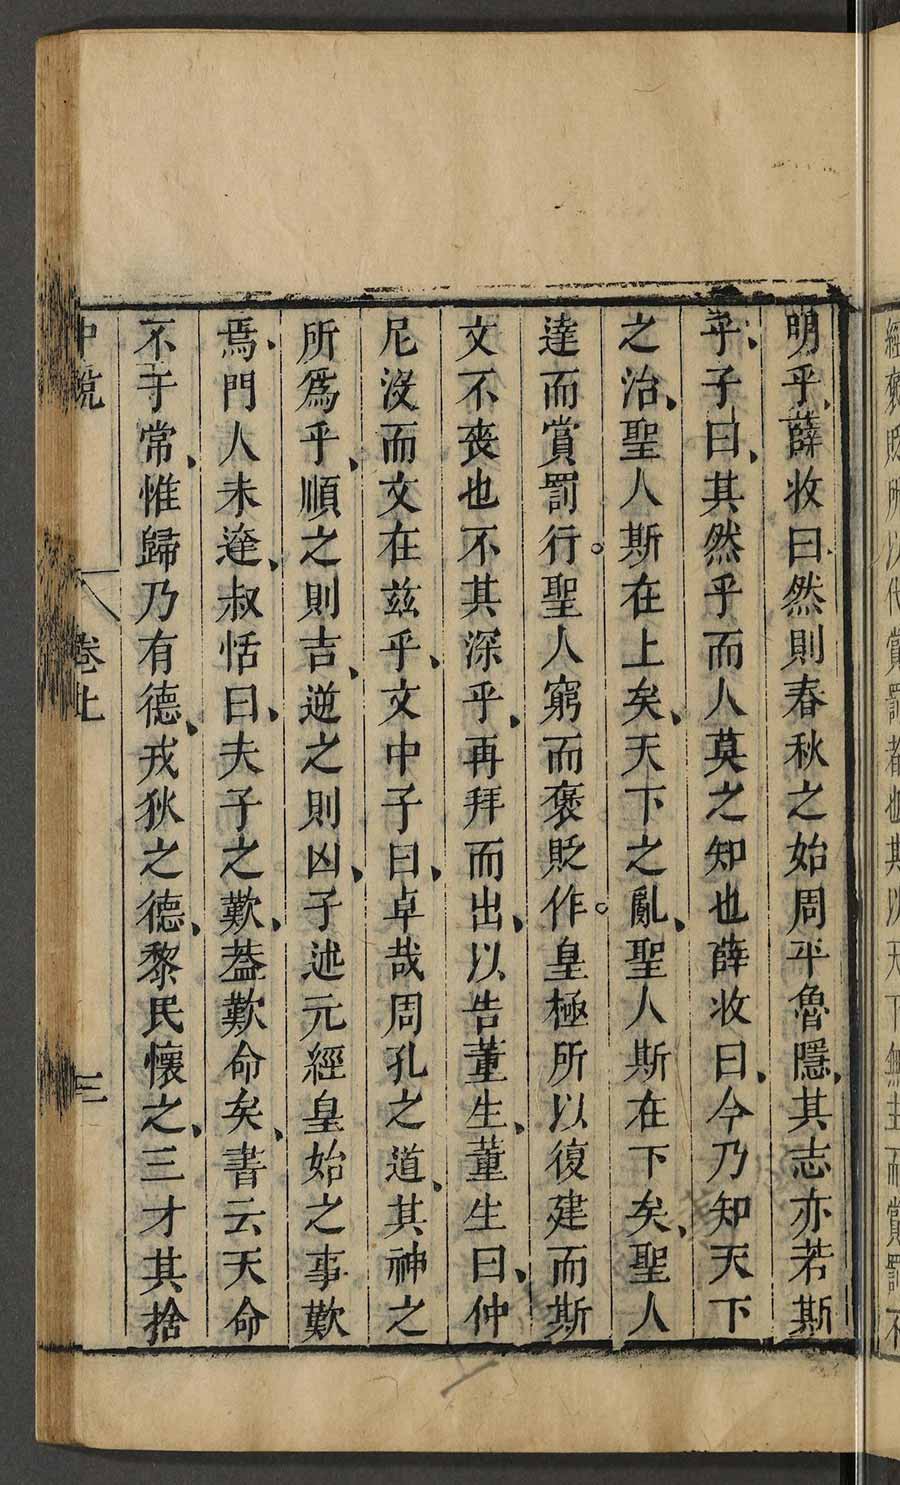 經褒貶所以代賞罰者也其以天下無主而賞罰不
明乎薛收曰然則春秋之始周平魯隱其志亦若斯
乎子曰其然乎而人莫之知也薛收曰今乃知天下
之治聖人斯在上矣天下之亂聖人斯在下矣聖人
達而賞罰行聖人窮而褒貶作皇極所以復建而斯
文不喪也不其深乎再拜而出以告董生董生曰仲
尼沒而文在茲乎文中子曰卓哉周孔之道其神之
所爲乎順之則吉逆之則凶子述元經皇始之事歎
焉門人未達叔恬曰夫子之歎蓋歎命矣書云天命
不于常惟歸乃有德戎狄之德黎民懷之三才其捨
中說 卷上 三